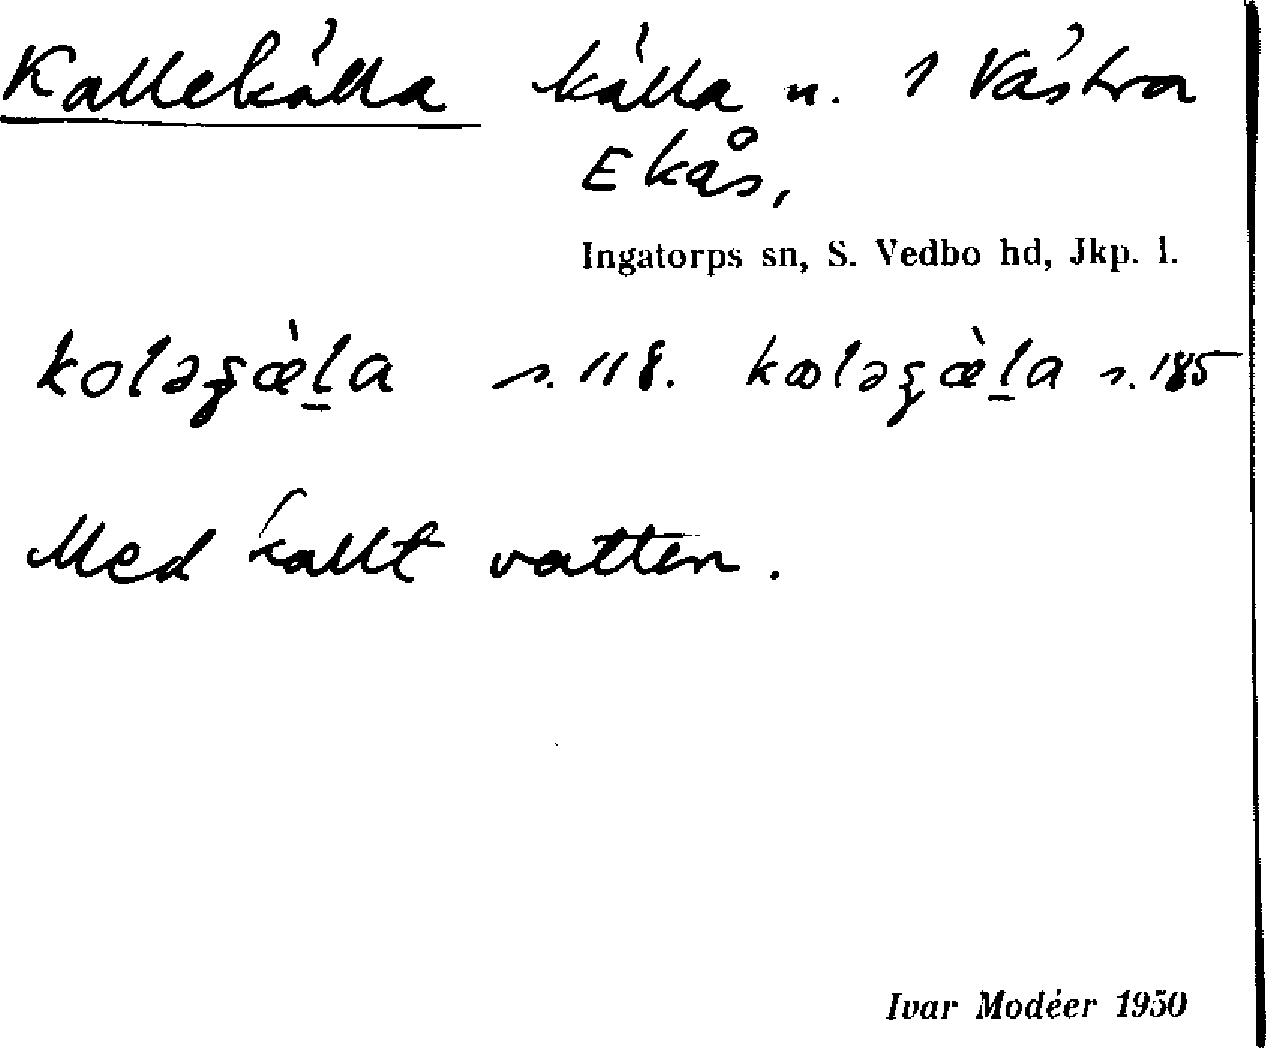 Kallekälla källa n. 1 Västra
Ekås,
Ingatorps sn, S. Vedbo hd, Jkp. l.
s. 118. s. 185
Med kallt vatten.
Ivar Modéer 1950